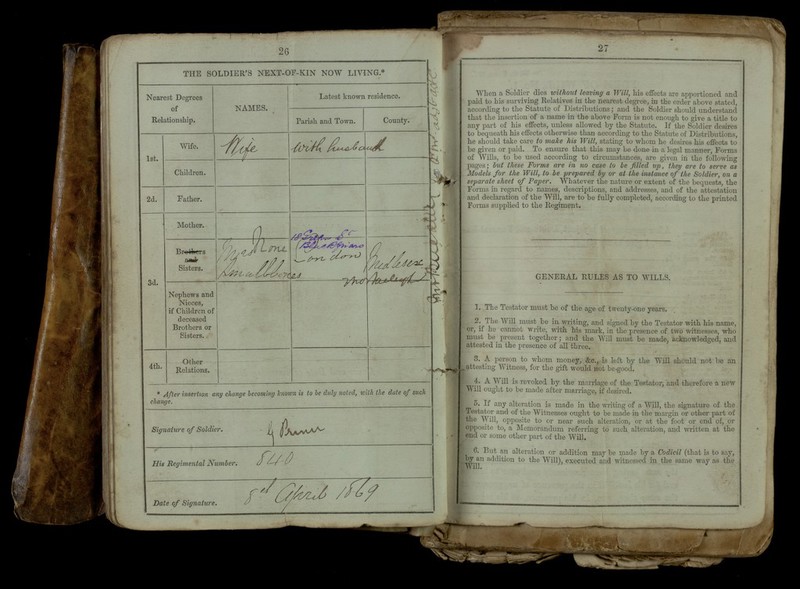 26
THE SOLDIER'S NEXT-OF-KIN NOW LIVING.*
Nearest Degrees
of
Relationship.
NAMES.
Latest known residence.
Parish and Town.
County.
1st.
Wife.
Wife
with husband
Children.
2d.
Father.
3d.
Mother.
Brothers
and
Sisters.
London
Smallbones
Nephews and
Nieces,
if Children of
deceased
Brothers or
Sisters.
4th.
Other
Relations.
* After insertion any change becoming known is to be duly noted, with the date of such
change.
Signature of Soldier.
His Regimental Number.
840
Date of Signature.
8th April 1869
27
When a Soldier dies without leaving a Will, his effects are apportioned and
paid to his surviving Relatives in the nearest degree, in the order above stated,
according to the Statute of Distributions; and the Soldier should understand
that the insertion of a name in the above Form is not enough to give a title to
any part of his effects, unless allowed by the Statute. If the Soldier desires
to bequeath his effects otherwise than according to the Statute of Distributions,
he should take care to make his Will, stating to whom he desires his effects to
be given or paid. To ensure that this may be done in a legal manner, Forms
of Wills, to be used according to circumstances, are given in the following
pages; but these Forms are in no case to be filled up, they are to serve as
Models for the Will, to be prepared by or at the instance of the Soldier, on a
separate sheet of Paper. Whatever the nature or extent of the bequests, the
Forms in regard to names, descriptions, and addresses, and of the attestation
and declaration of the Will, are to be fully completed, according to the printed
Forms supplied to the Regiment.
GENERAL RULES AS TO WILLS.
1. The Testator must be of the age of twenty-one years.
2. The Will must be in writing, and signed by the Testator with his name,
or, if he cannot write, with his mark, in the presence of two witnesses, who
must be present together; and the Will must be made, acknowledged, and
attested in the presence of all three.
3. A person to whom money, &c., is left by the Will should not be an
attesting Witness, for the gift would not be good.
4. A Will is revoked by the marriage of the Testator, and therefore a new
Will ought to be made after marriage, if desired.
5. If any alteration is made in the writing of a Will, the signature of the
Testator and of the Witnesses ought to be made in the margin or other part of
the Will, opposite to or near such alteration, or at the foot or end of, or
opposite to, a Memorandum referring to such alteration, and written at the
end or some other part of the Will.
6. But an alteration or addition may be made by a Codicil (that is to say,
by an addition to the Will), executed and witnessed in the same way as the
Will.